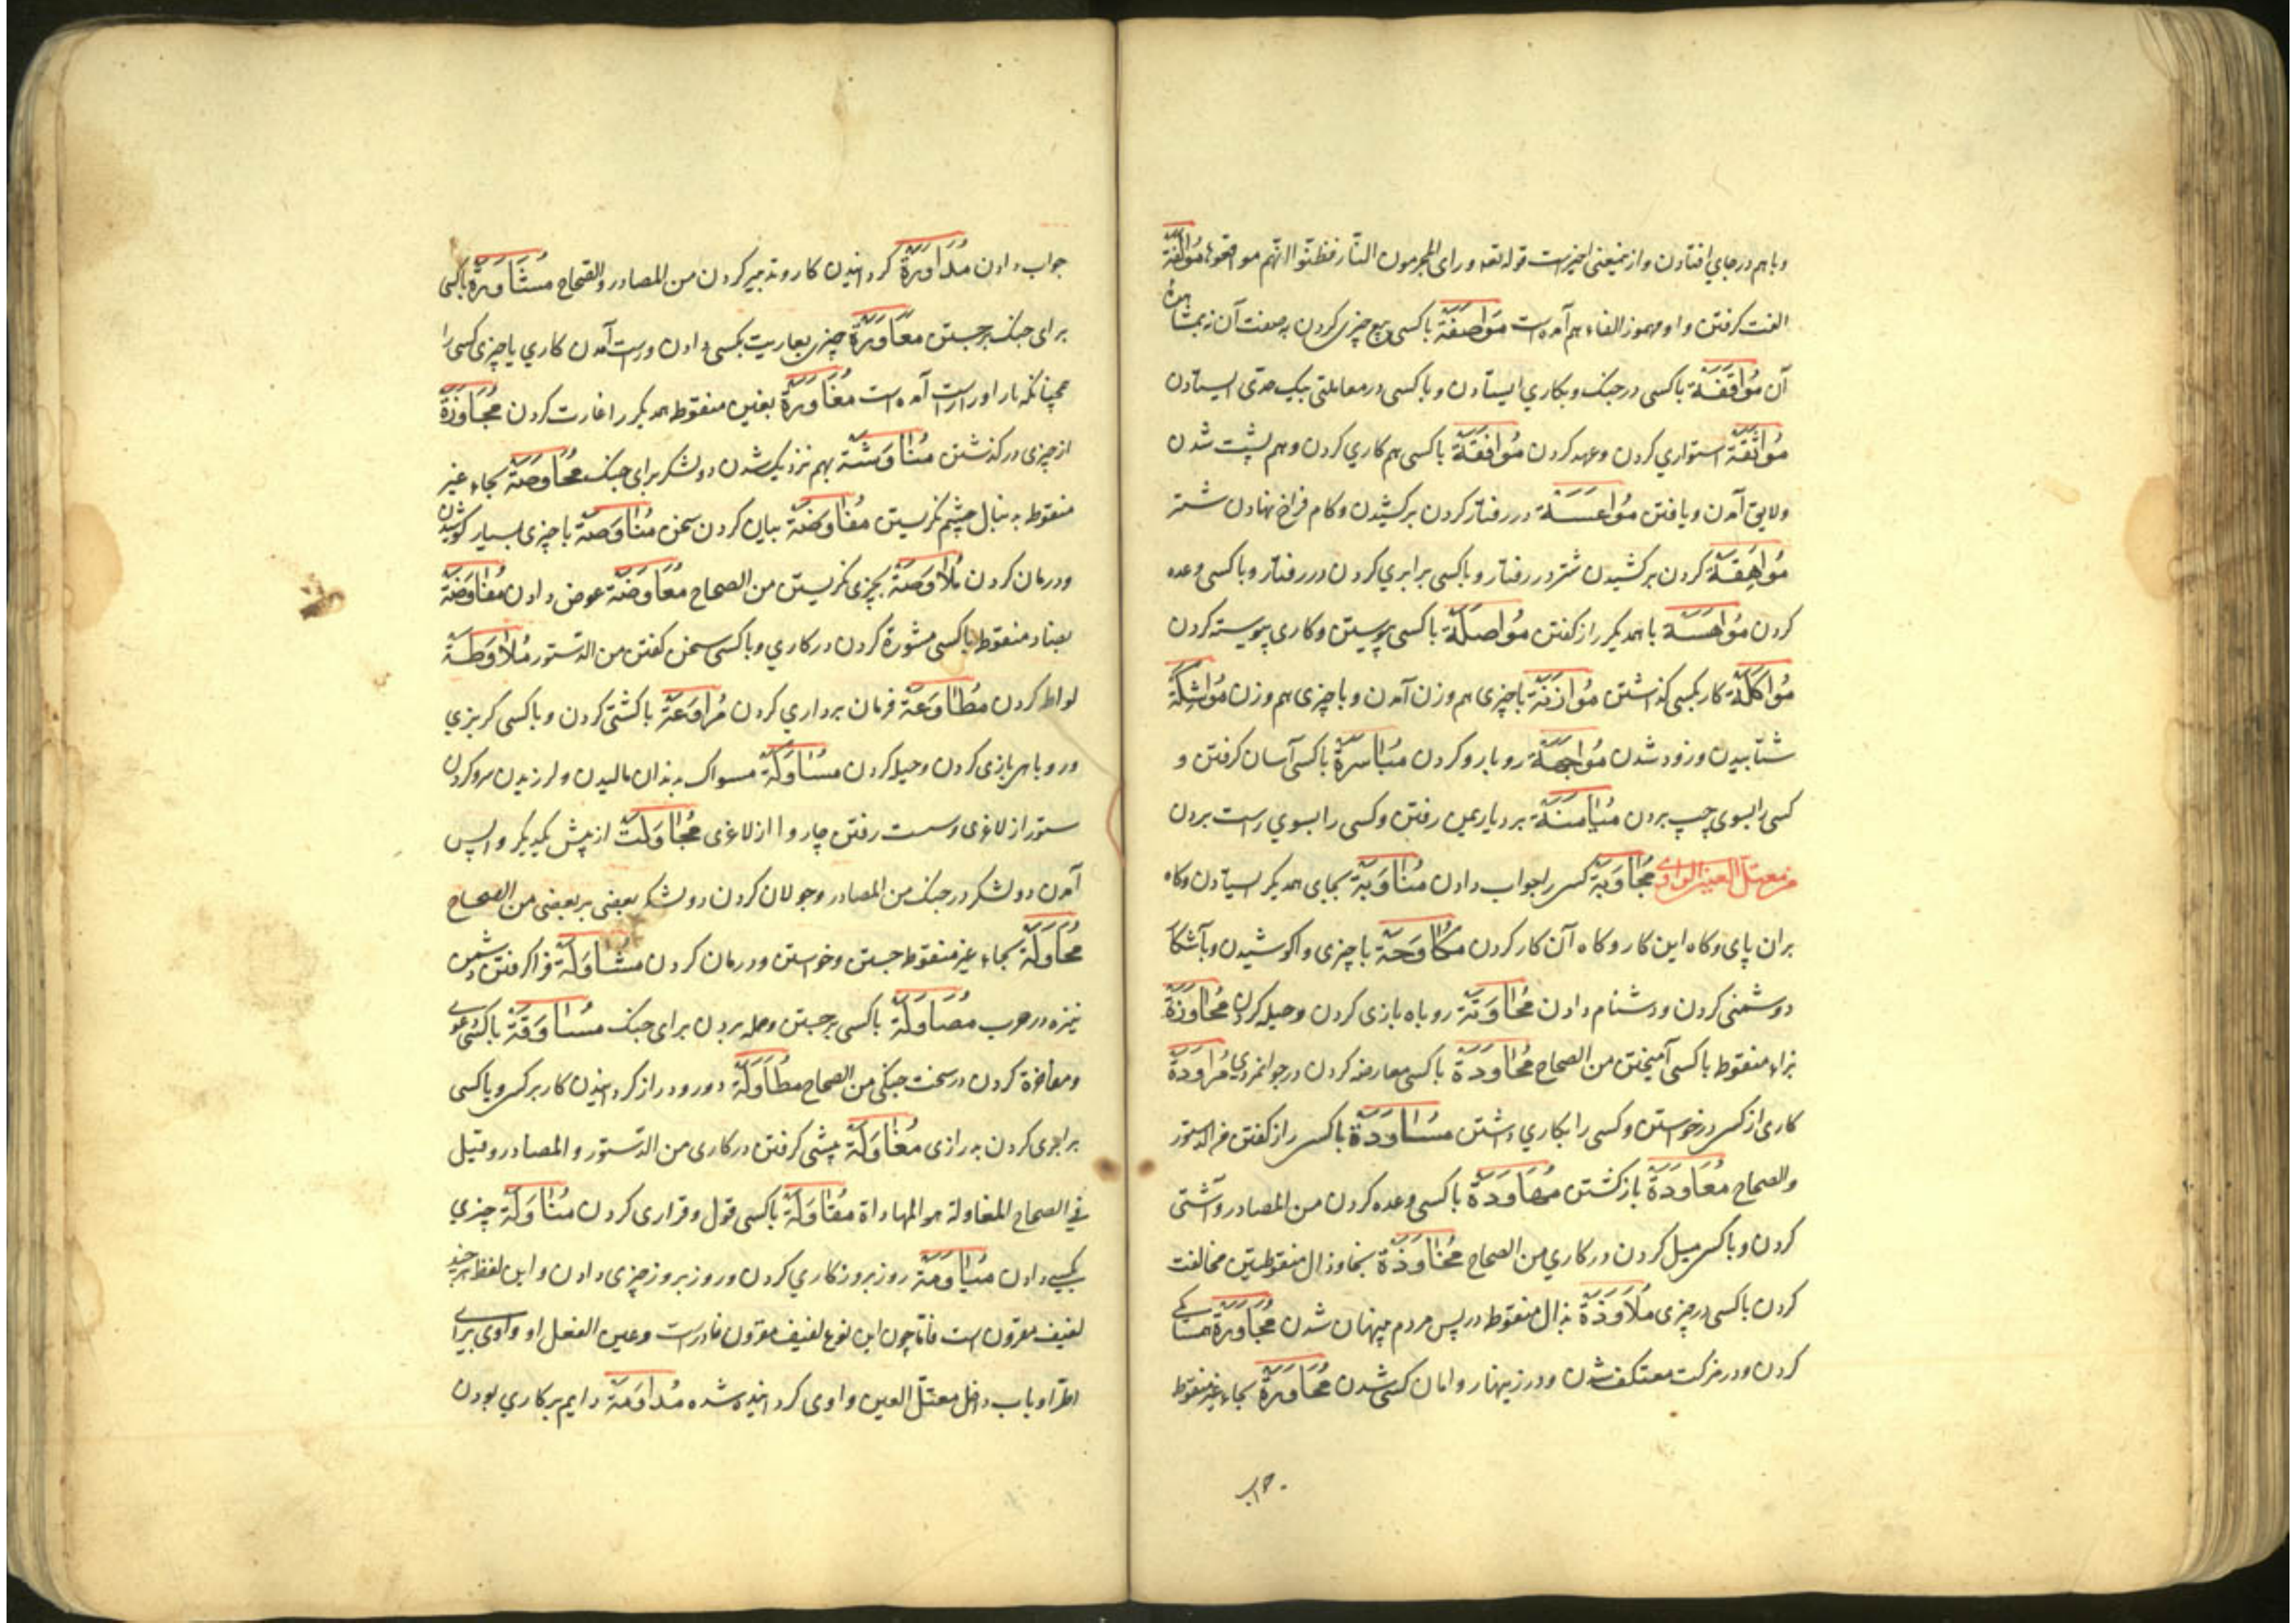 وباهم درجای افتادن وازینمعنی اخیرست قوله تعه ورای المجرمون النار فظنّوا انّهم مواقعوها مُوَالَفَة
الفت گرفتن واو ومهموز الفاء هم آمده است مُوَاصَفَة باکسی بیع چیزی کردن به صفت آن نه بمشاهدهٔ
آن مُوَاقَفَة باکسی در جنک وبکاری ایستادن وباکسی در معاملتی بیک حدّی ایستادن
مُوَاثَقَة استواری کردن وعهد کردن مُوَافَقَة باکسی هم کاری کردن وهم پشت شدن
ولایق آمدن ویافتن مُوَاعَسَة در رفتار کردن برکشیدن وکام فراخ نهادن شتر
مُوَاهَقَة کردن برکشیدن شتر در رفتار وباکسی برابری کردن در رفتار وباکسی وعده
کردن مُوَاهَسَة باهمدیکر راز کفتن مُوَاصَلَة باکسی پیوستن وکاری پیوسته کردن
مُوَاکَلَة کار بکسی کذاشتن مُوَازَنَة باچیزی هم وزن آمدن وباچیزی هم وزن مُوَاشَکَة
شتابیدن وزود شدن مُوَاجَهَة روبارو کردن مُیَاسَرَة باکسی آسان کرفتن و
کسی را بسوی چپ بردن مُیَامَنَة بردیار یمین رفتن وکسی را بسوی راست بردن
من معتلّ العین الواوی مُجَاوَبَة کسی را جواب دادن مُنَاوَبَة بجای همدیکر ایستادن وکاه
بران پای وکاه این کار وکاه آن کار کردن مُکَاوَحَة باچیزی واکوشیدن وبآشکا
دوشمنی کردن ودشنام دادن مُحَاوَتَة روباه بازی کردن وحیله کردن مُحَاوَزَة
بزاء منقوط باکسی آمیختن من الصحاح مُجَاوَدَة باکسی معارضه کردن در جوانمردی مُرَاوَدَة
کاری از کسی درخواستن وکسی را بکاری داشتن مُسَاوَدَة باکسی راز کفتن من الدستور
والصحاح مُعَاوَدَة بازکشتن مُهَاوَدَة باکسی وعده کردن من المصادر وآشتی
کردن وباکسی میل کردن در کاری من الصحاح مُخَاوَذَة بخا وذال منقوطتین مخالفت
کردن باکسی در چیزی مُلَاوَذَة بذال منقوط در پس مردم پنهان شدن مُجَاوَرَة همسایکی
کردن ودر مزکت معتکف شدن ودر زینهار وامان کسی شدن مُحَاوَرَة بحاء غیر منقوط
جواب
جواب دادن مُدَاوَرَة کردانیدن کار وتدبیر کردن من المصادر والصّحاح مُسَاوَرَة باکسی
برای جنک برجستن مُعَاوَرَة چیزی بعاریت بکسی دادن وراست آمدن کاری یا چیزی کسی را
همچنانکه بار او راراست آمده است مُغَاوَرَة بغین منقوط همدیکر را غارت کردن مُجَاوَزَة
از چیزی درکذشتن مُنَاوَشَة بهم نزدیک شدن دو لشکر برای جنک مُحَاوَصَة بحاء غیر
منقوط به دنبال چشم نکریستن مُفَاوَصَة بیان کردن سخن مُنَاوَصَة باچیزی بسیار کوشیدن
ودرمان کردن مُلَاوَصَة بچیزی نکریستن من الصحاح مُعَاوَضَة عوض دادن مُفَاوَضَة
بضاد منقوط باکسی مشورة کردن در کاری وباکسی سخن کفتن من الدّستور مُلَاوَطَة
لواطه کردن مُطَاوَعَة فرمان برداری کردن مُرَاوَغَة باکشتی کردن وباکسی کربزی
وروباهی بازی کردن وحیله کردن مُسَاوَکَة مسواک به دندان مالیدن ولرزیدن سر وکردن
ستور از لاغری وسست رفتن چاروا از لاغری مُجَاوَلَت از پیش یکدیکر واپس
آمدن دو لشکر در جنک من المصادر وجولان کردن دو لشکر بعضی بر بعضی من الصحاح
مُحَاوَلَة بحاء غیر منقوط جستن وخواستن ودرمان کردن مُشَاوَلَة فراکرفتن دشمن
نیزه در حرب مُصَاوَلَة باکسی برجستن وحمله بردن برای جنک مُسَاوَقَة باکسی دعوی
ومفاخرة کردن در سخت جنکی من الصحاح مُطَاوَلَة دور ودراز کردانیدن کار بر کسی وباکسی
برابری کردن به درازی مُغَاوَلَة پیشی کرفتن در کاری من الدّستور والمصادر وقیل
فی الصحاح المغاولة هو المهاداة مُقَاوَلَة باکسی قول وقراری کردن مُنَاوَلَة چیزی
بکسی دادن مُیَاوَمَة روز بروز کاری کردن وروز بروز چیزی دادن واین لفظ هر چند
لفیف مقرون است فامّا چون این نوع لفیف مقرون نادرست وعین الفعل او واوی برای
اطّراد باب داخل معتلّ العین واوی کردانیده شده مُدَاوَمَة دایم بر کاری بودن